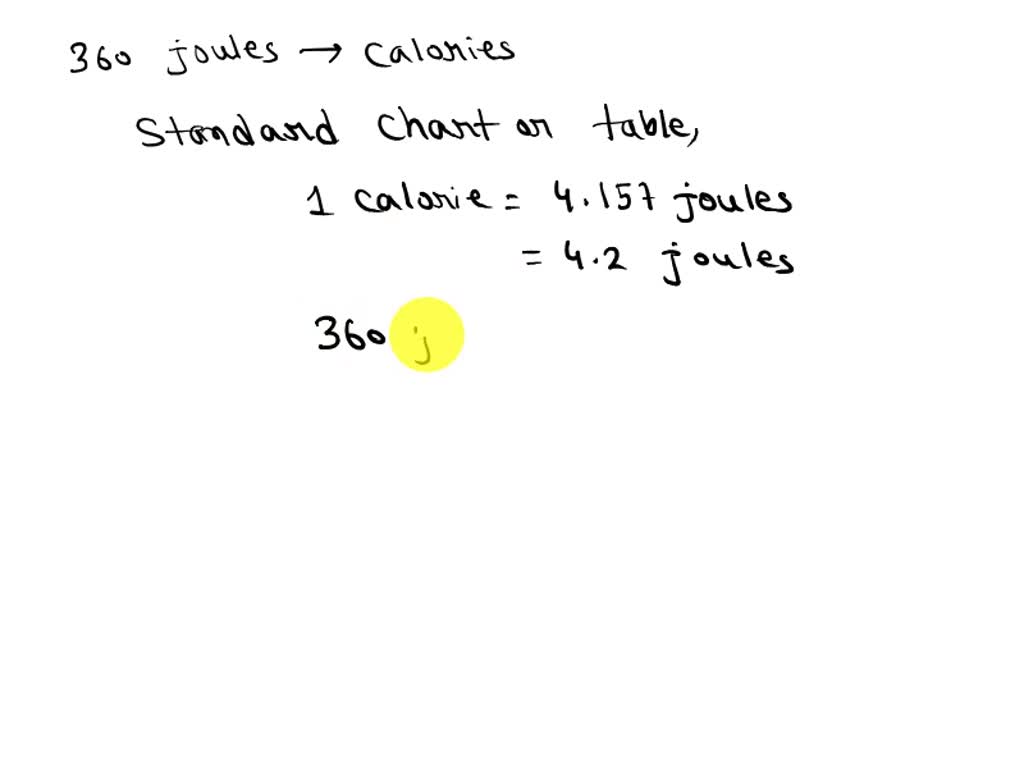 360 joules → calories
Standard chart or table,
1 calorie = 4.157 joules
= 4.2 joules
360 j